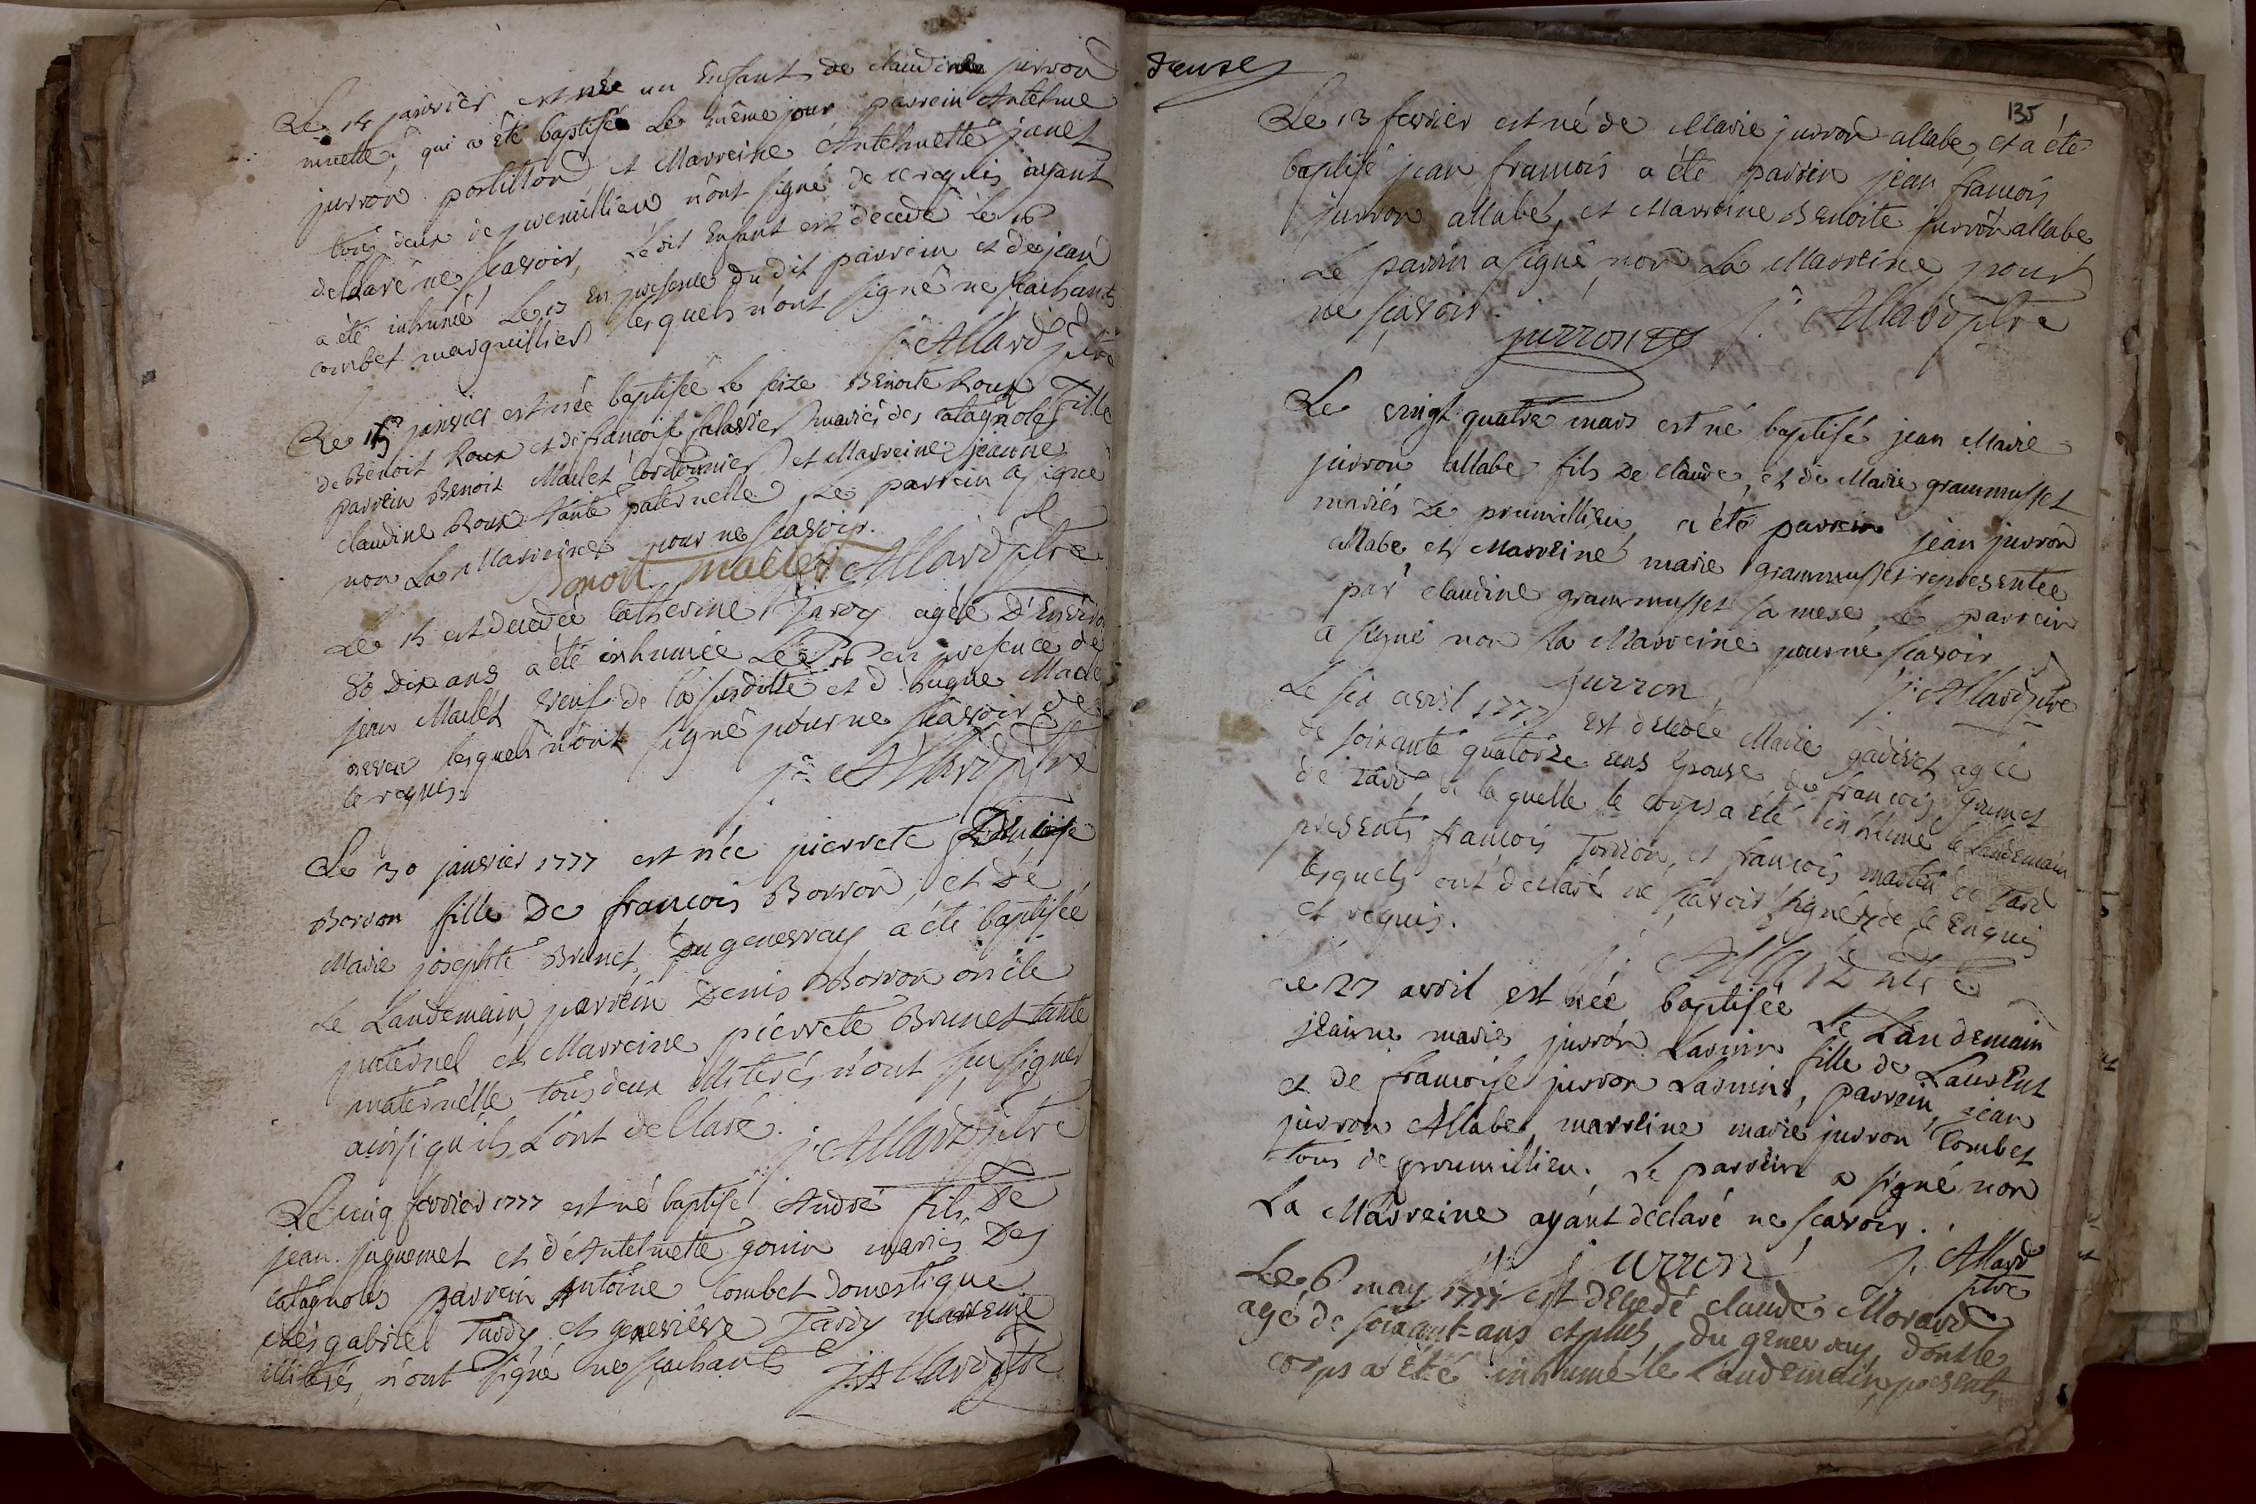 Le 14 janvier est née un Enfant de claudine jurron
muette, qui a été baptisé Le même jour parrein Antelme
jurron postillon et Marreine Antelmette janet
tous deux de preumillieu n'ont signé de ce requis ayant
declaré ne sçavoir, Ledit Enfant est decedé Le 16
a été inhumé Le 17 En presence du dit parrein et de jean
combet marguillier lesquels n'ont signé ne sçachants
j. Allard ptre
Le 15 janvier est née baptisée Le seize Benoite Roux Fille
de Benoit Roux et de françoise salavier mariés des catagnoles
parrein Benoit Maclet Cordonnier et Marreine jeanne
claudine Roux tante paternelle Le parrein a signé
non La Marreine pour ne sçavoir.
Benoit maclet j. Allard ptre
Le 15 est decedée Catherine Tardy agée D'Environ
80 Dix ans a été inhumée Le 16 en presence de
jean Maclet veuf de la susditte et d'hugue Maclet
neveu lesquels n'ont signé pour ne sçavoir de
ce requis.
j. Allard ptre
Le 30 janvier 1777 est née pierrete
Borron fille De françois Borron, et De
Marie josephte Brunet, Du genevray a été baptisée
Le Landemain parrein Denis Borron oncle
paternel et Marreine pierrete Brunet tante
maternelle tous deux illiterés n'ont sçu signer
ainsi qu'ils L'ont declaré.
j. Allard ptre
Le cinq fevrier 1777 est né baptisé André fils De
jean juguemet et d'Antelmette gonin mariés Des
catagnoles parrein Antoine Combet Domestique
chés gabriel Tardy et genevieve Tardy marreine
illiterés, n'ont signé ne sçachants
j. Allard ptre
135
Le 13 fevrier est né de Marie jurron allabe, et a été
baptisé jean françois a été parrin jean françois
jurron allabe, et Marreine Benoite jurron allabe
Le parrin a signé, non La Marreine pour
ne sçavoir.
jurron j. Allard ptre
Le vingt quatre mars est né baptisé jean Marie
jurron allabe fils De claude, et de Marie grammusset
mariés De prumillieu, a été parrein jean jurron
allabe et Marreine marie grammusset representée
par claudine grammusset sa mere, Le parrein
a signé non La Marreine pour ne sçavoir
jurron j. Allard ptre
Le six avril 1777 est decedée Marie gadivet agée
de soixante quatorze ans Epouse de françois gaumet
de Tard, de laquelle le corps a été inhumé le landemain
presents françois Torrion, et françois martin de Tard
lesquels ont declaré ne sçavoir signer de ce Enquis
et requis.
j. Allard ptre
Le 27 avril est née, baptisée Le Landemain
jeanne marie jurron Larmin fille de Laurent
et de françoise jurron Larmin, parrein, jean
jurron Allabe, marreine marie jurron Combet
tous de proumillieu. Le parrein a signé non
La Marreine ayant declaré ne sçavoir.
jurron j. Allard
ptre
Le 6 may 1777 est decedé claude Morard
agé de soixant-ans et plus, Du genevray dont le
corps a été inhumé le landemain, presents